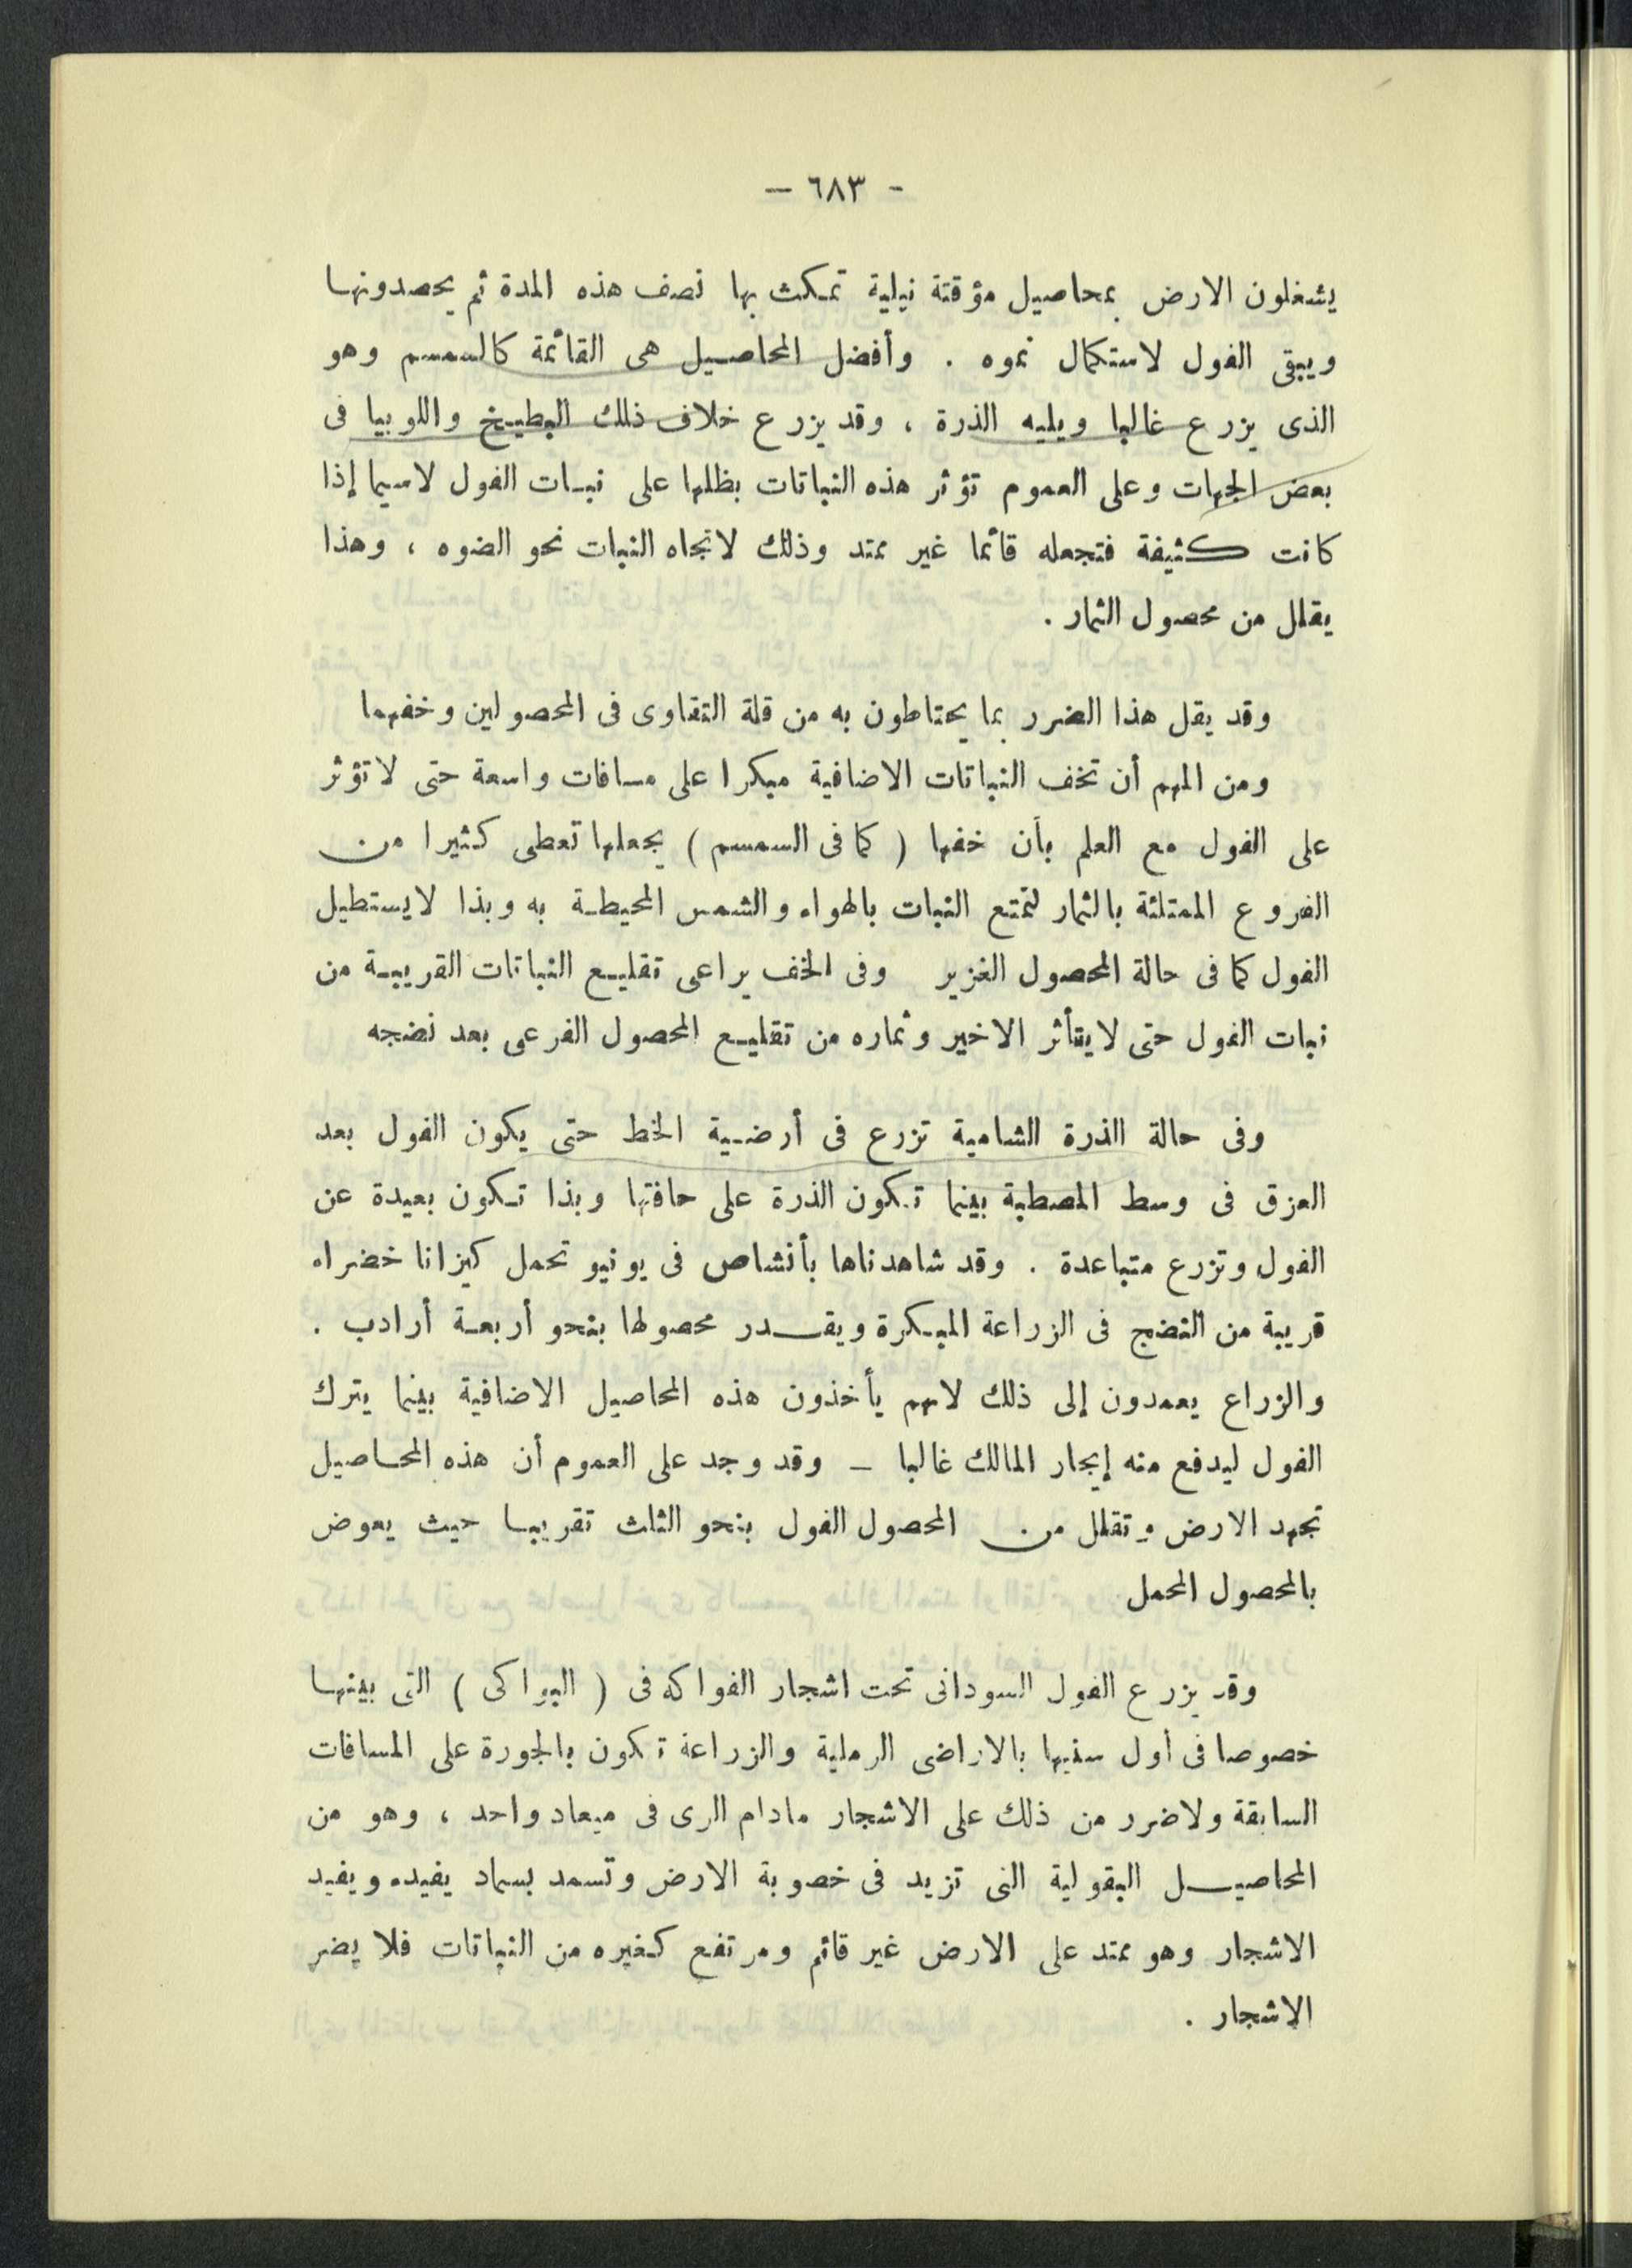 - ٦٨٣ -
يشغلون الارض بمحاصيل مؤقتة نيلية تمكث بها نصف هذه المدة ثم يحصدونها
ويبقى الفول لاستكمال نموه . وأفضل المحاصيل هى القائمة كالسمسم وهو
الذى يزرع غالبا ويليه الذرة ، وقد يزرع خلاف ذلك البطيخ واللوبيا فى
بعض الجهات وعلى العموم تؤثر هذه النباتات بظلها على نبات الفول لاسيما إذا
كانت كثيفة فتجعله قائما غير ممتد وذلك لاتجاه النبات نحو الضوء ، وهذا
يقلل من محصول الثمار .
وقد يقل هذا الضرر بما يحتاطون به من قلة التقاوى فى المحصولين وخفهما
ومن المهم أن تخف النباتات الاضافية مبكرا على مسافات واسعة حتى لا تؤثر
على الفول مع العلم بأن خفها ( كما فى السمسم ) يجعلها تعطى كثيرا من
الفروع الممتلئة بالثمار لتمتع النبات بالهواء والشمس المحيطة به وبذا لايستطيل
الفول كما فى حالة المحصول الغزير وفى الخف يراعى تقليع النباتات القريبة من
نبات الفول حتى لايتأثر الاخير وثماره من تقليع المحصول الفرعى بعد نضجه
وفى حالة الذرة الشامية تزرع فى أرضية الخط حتى يكون الفول بعد
العزق فى وسط المصطبة بينما تكون الذرة على حافتها وبذا تكون بعيدة عن
الفول وتزرع متباعدة . وقد شاهدناها بأنشاص فى يونيو تحمل كيزانا خضراء
قريبة من النضج فى الزراعة المبكرة ويقدر محصولها بنحو أربعة أرادب .
والزراع يعمدون إلى ذلك لانهم يأخذون هذه المحاصيل الاضافية بينما يترك
الفول ليدفع منه إيجار المالك غالبا - وقد وجد على العموم أن هذه المحاصيل
تجهد الارض وتقلل من المحصول الفول بنحو الثلث تقريبا حيث يعوض
بالمحصول المحمل
وقد يزرع الفول السودانى تحت اشجار الفواكه فى ( البواكى ) التى بينها
خصوصا فى أول سنيها بالاراضى الرملية والزراعة تكون بالجورة على المسافات
السابقة ولاضرر من ذلك على الاشجار مادام الرى فى ميعاد واحد ، وهو من
المحاصيل البقولية التى تزيد فى خصوبة الارض وتسمد بسماد يفيده ويفيد
الاشجار وهو ممتد على الارض غير قائم ومرتفع كغيره من النباتات فلا يضر
الاشجار .